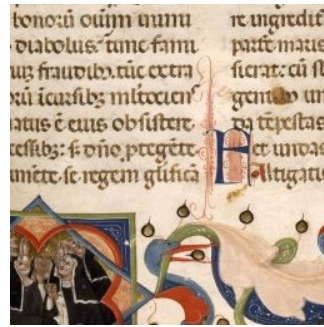 bonorū ouim inimi
diabolus. tunc fami
fraudibꝰ. tūc extra
icursibꝰ mltocien
atus ē euis obsistere
tessibꝫ: ⁊ dño ptegēte
se regem glificā
re ingredit
parte maris
fierat. cū
gentilo un
tēpestas
et undas
Mitigatis